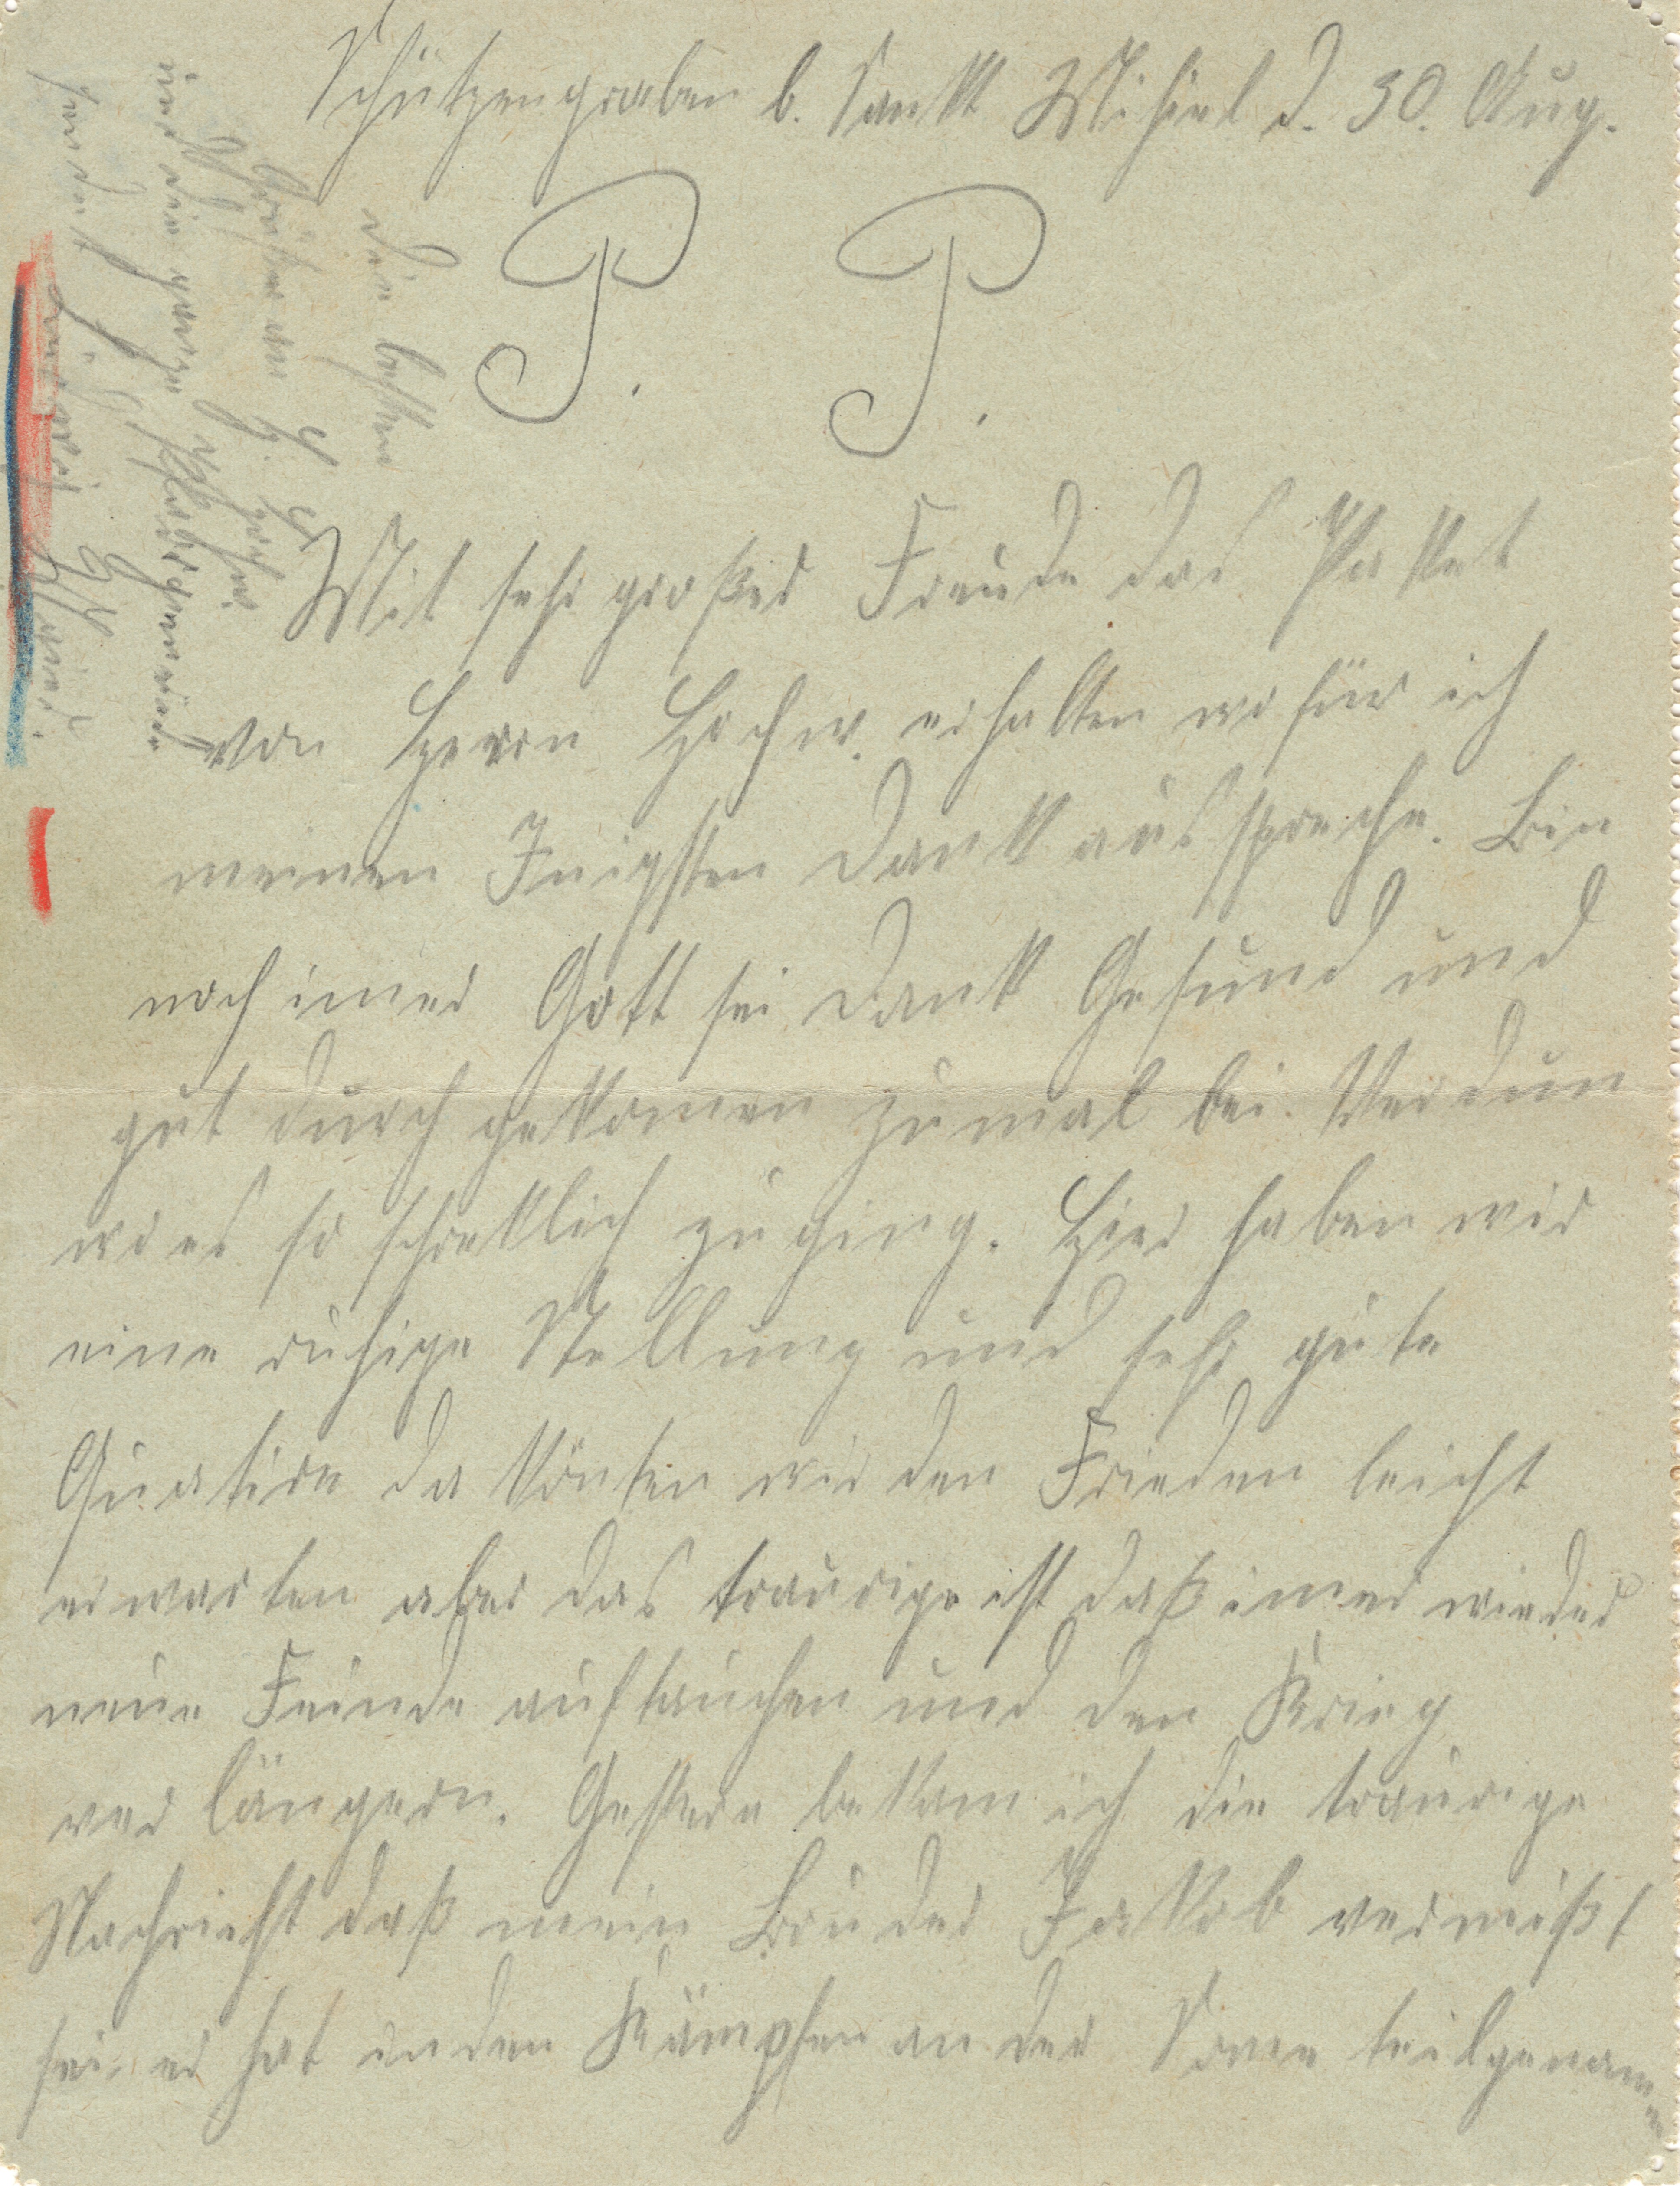 Schützengraben b. Sankt Mihiel d. 30. Aug.
P. P.
Mit sehr großer Freude das Packet
von Herrn Hochw. erhalten wofür ich
meinen Inigsten Dank ausspreche. Bin
noch imer Gott sei Dank Gesund und
gut durch gekomen zumal bei Verdun
wo es so schreklich zuging. Hier haben wir
eine ruhige Stellung und sehr gute
Quatire da könten wir den Frieden leicht
erwarten aber das traurige ist daß imer wieder
neue Feinde auftauchen und den Krieg
verlängern. Gestern bekam ich die traurige
Nachricht daß mein Bruder Jakob vermißt
sei er hat in den Kämpfen an der Some teilgenomen
Die besten
Grüße an H. H.
und die ganze Pfarrgemeinde
sendet